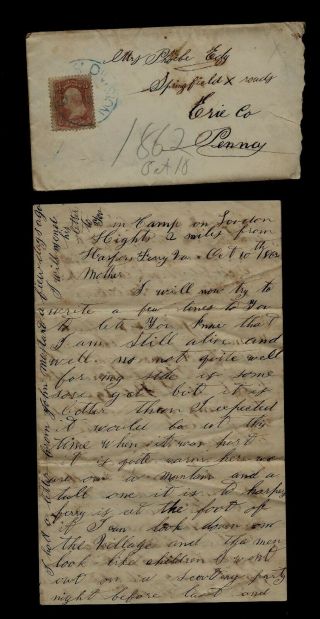 Mrs Phoebe
Springfield X roads
Erie Co
Penna
1862
Oct 18
DIVISION
in Camp on Loudon
Hights 2 miles from
Harpers Ferry Va Oct 10th 1862
Mother
I will now try to
write a few lines to You
to let You know that
I am Still alive and
well no not quite well
for my side is some
sore yet but it is
better then I expected
it would be at this
time when it was hurt
it is quite warm here we
are on a mountin and a
tall one it is to harpers
ferry is at the foot of
it I can look down on
the village and the men
look like children I went
out on a scouting party
night before last and
I had a letter from John
a few days ago
I will
his letter
to You